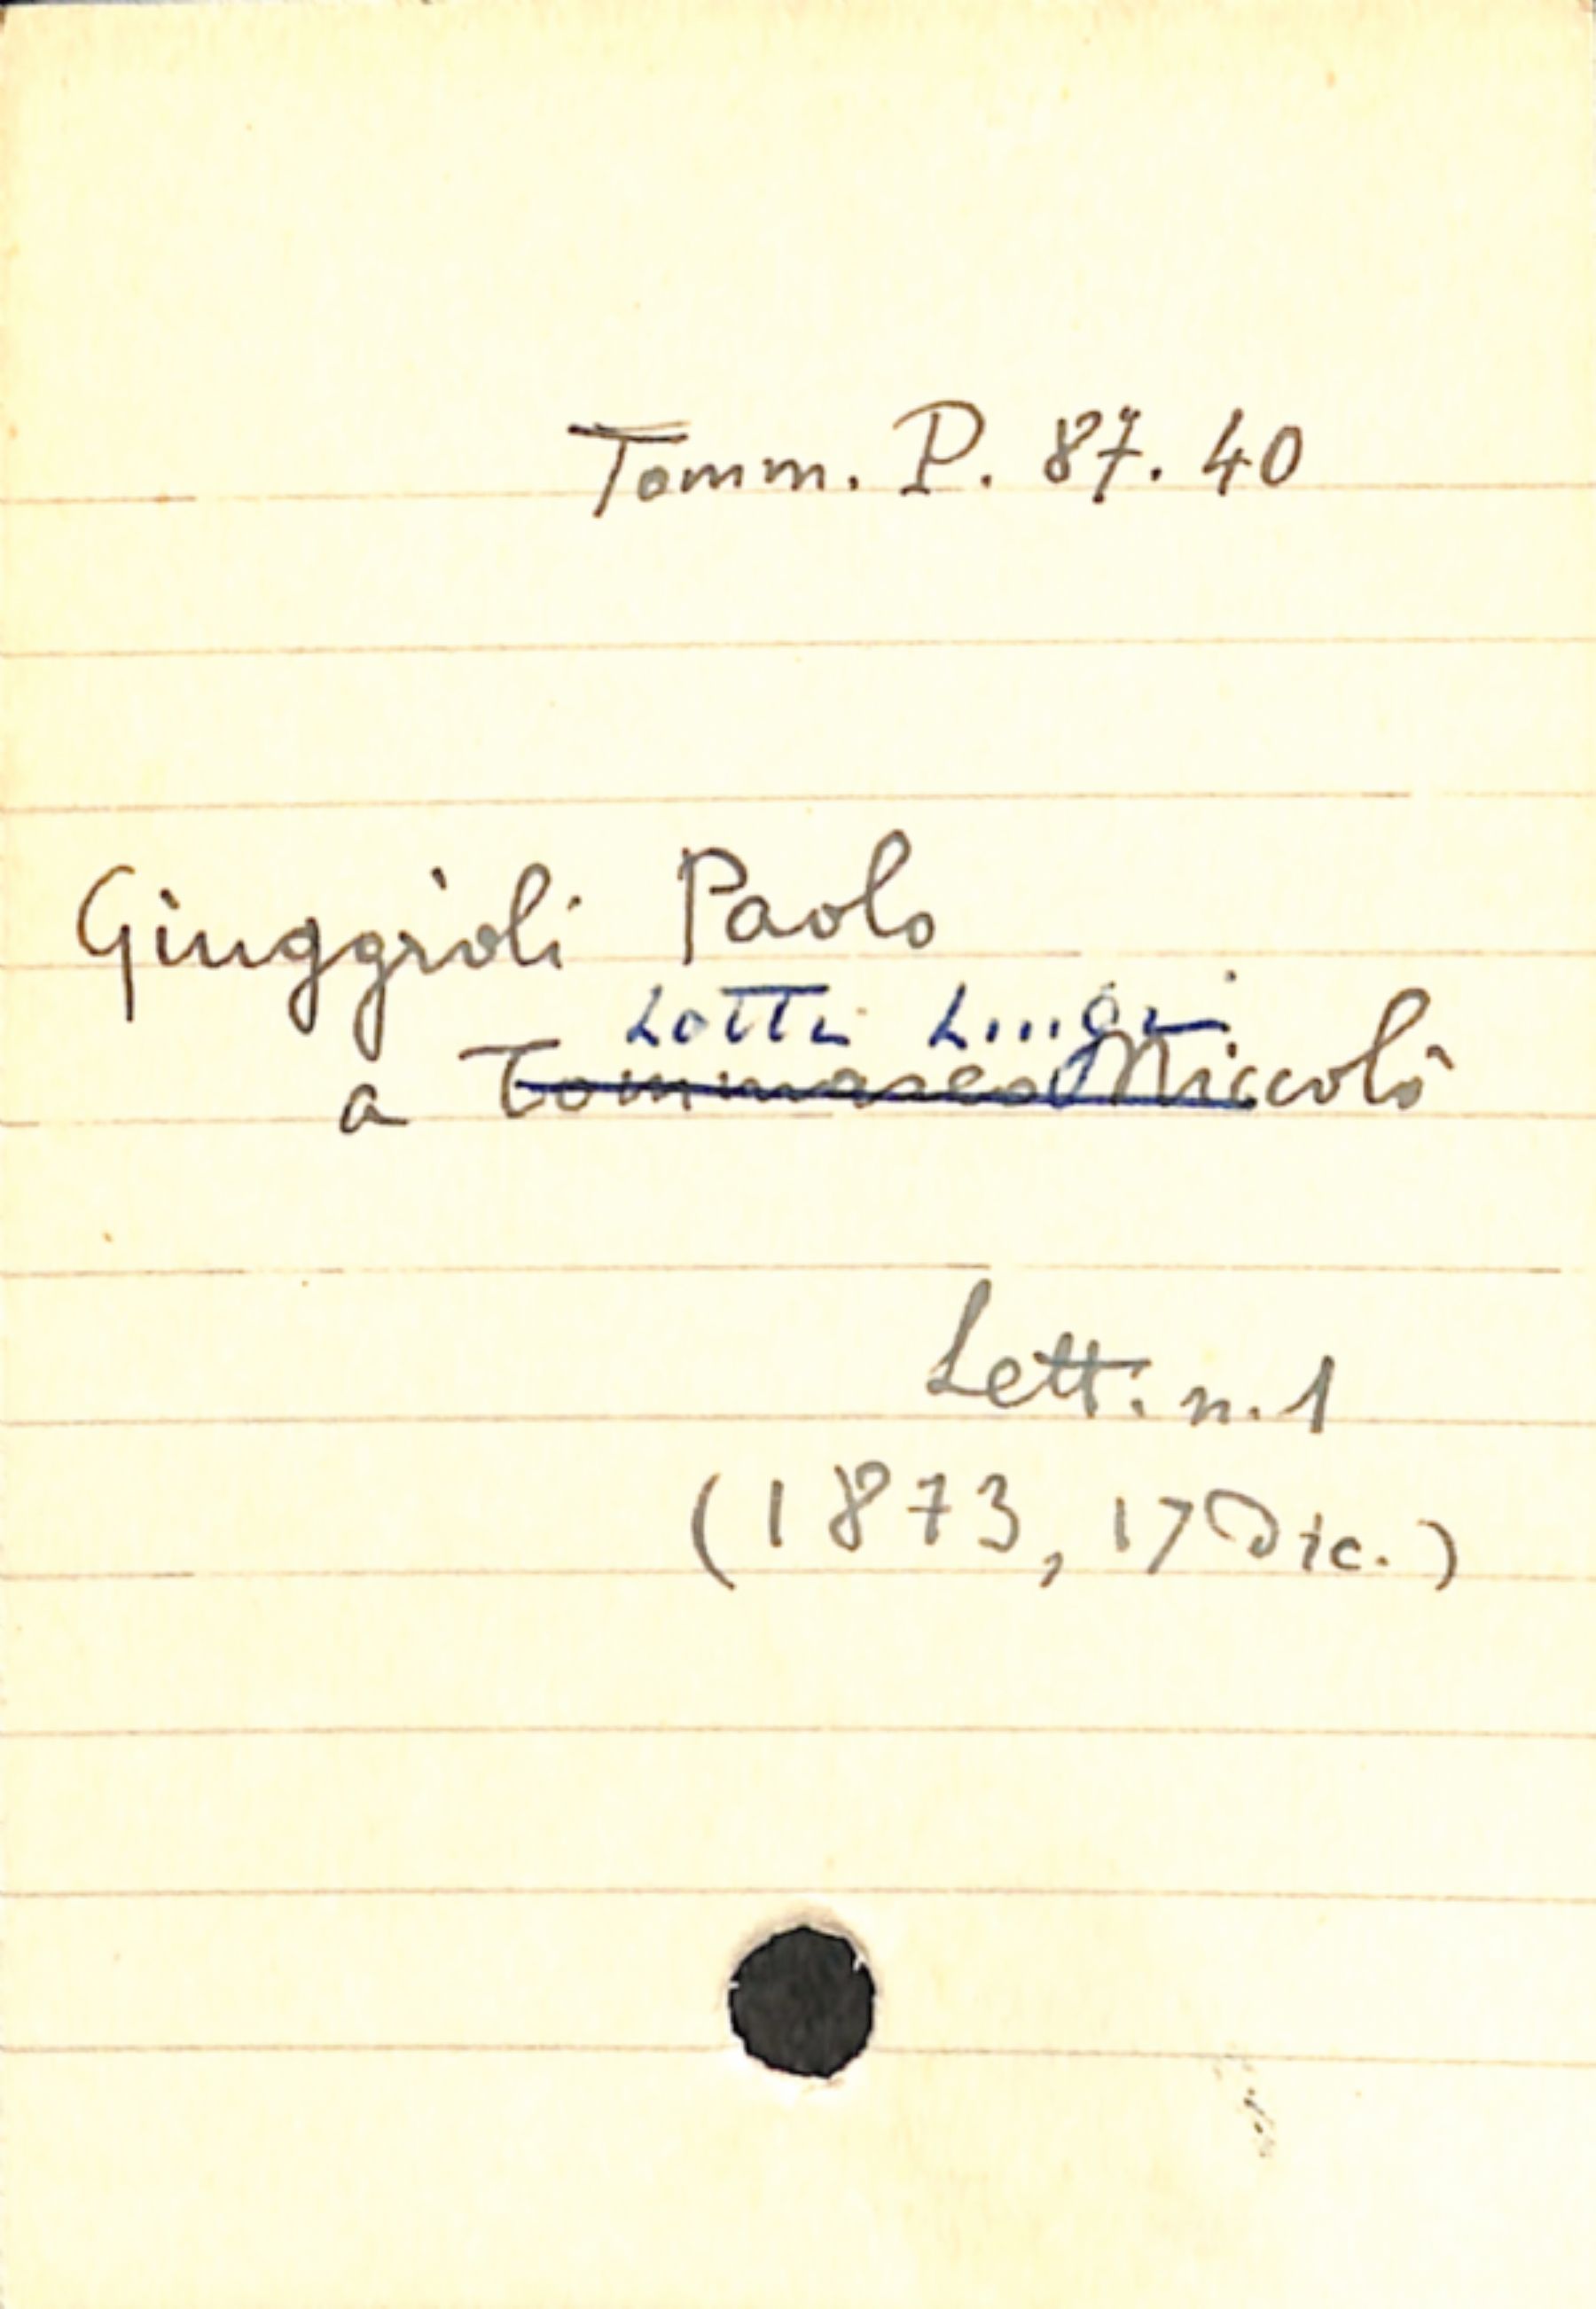 Tomm. P. 87. 40
Giuggioli Paolo
Lotti Luigi
a Tommaseo Niccolò
Lett. n. 1
(1873, 17 Dic.)